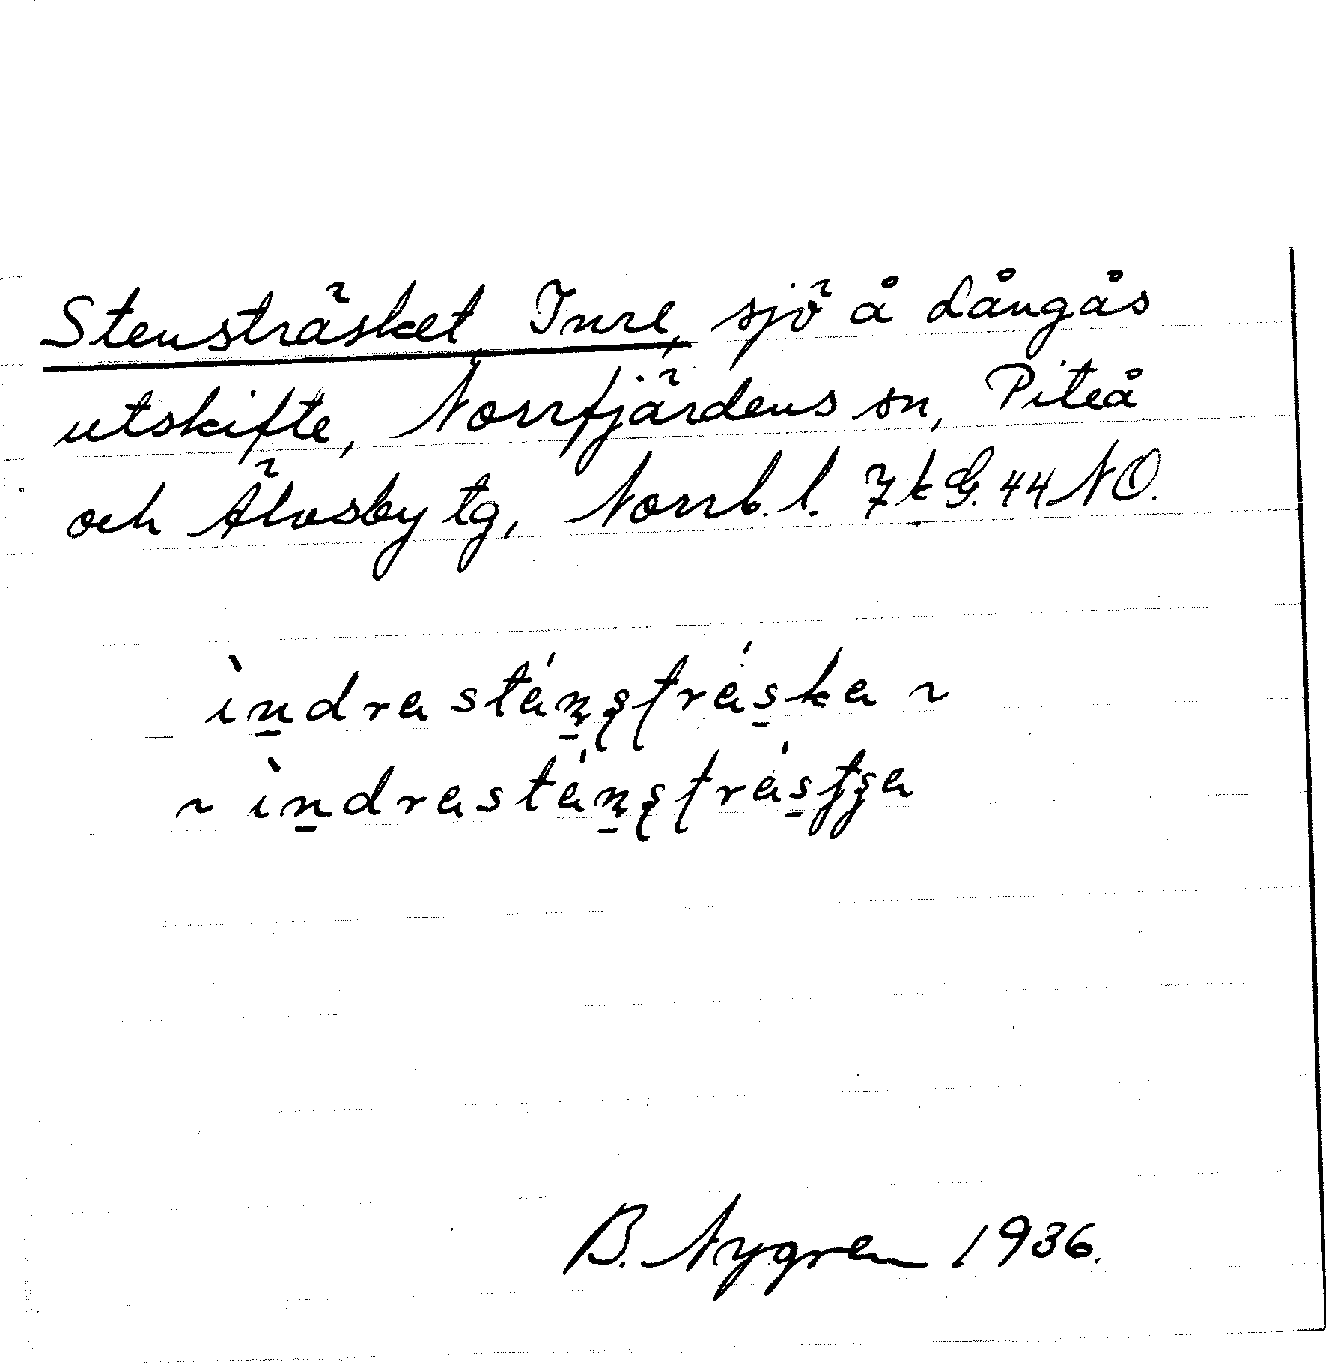 Stensträsket, Inre, sjö å Långås
utskifte, Norrfjärdens sn, Piteå
och Älvsby tg, Norrb. l. 7 k G. 44 NO.
ìn̠drastén̠ʂʈrás̠ka ~
~ ìn̠drastén̠ʂʈrás̠tʂa
B. Nygren 1936.